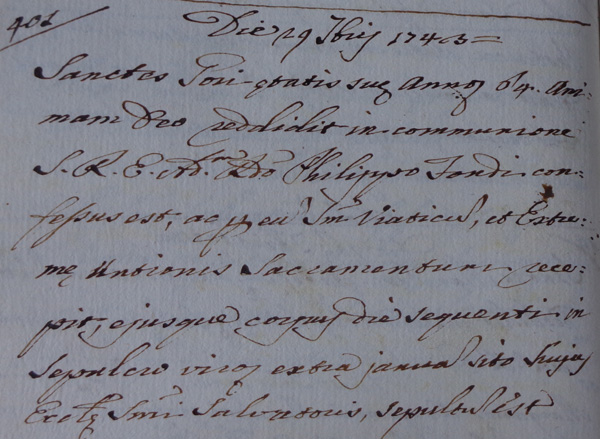 401
Die 29 7bris 1743=
Sanctes Tori ętatis suę Annoꝝ 64. Ani-
mam Deo reddidit in communione
S. R. E. Ad.m Rdo Philippo Tondi con-
fessus est, ac ꝑ eu Sm Viaticu, et Extre-
mę Untionis Sacramentum rece-
pit, ejusque corpus die sequenti in
sepulcro viroꝝ extra janua sito hujus
Eccl Smi Salvatoris, sepultus est